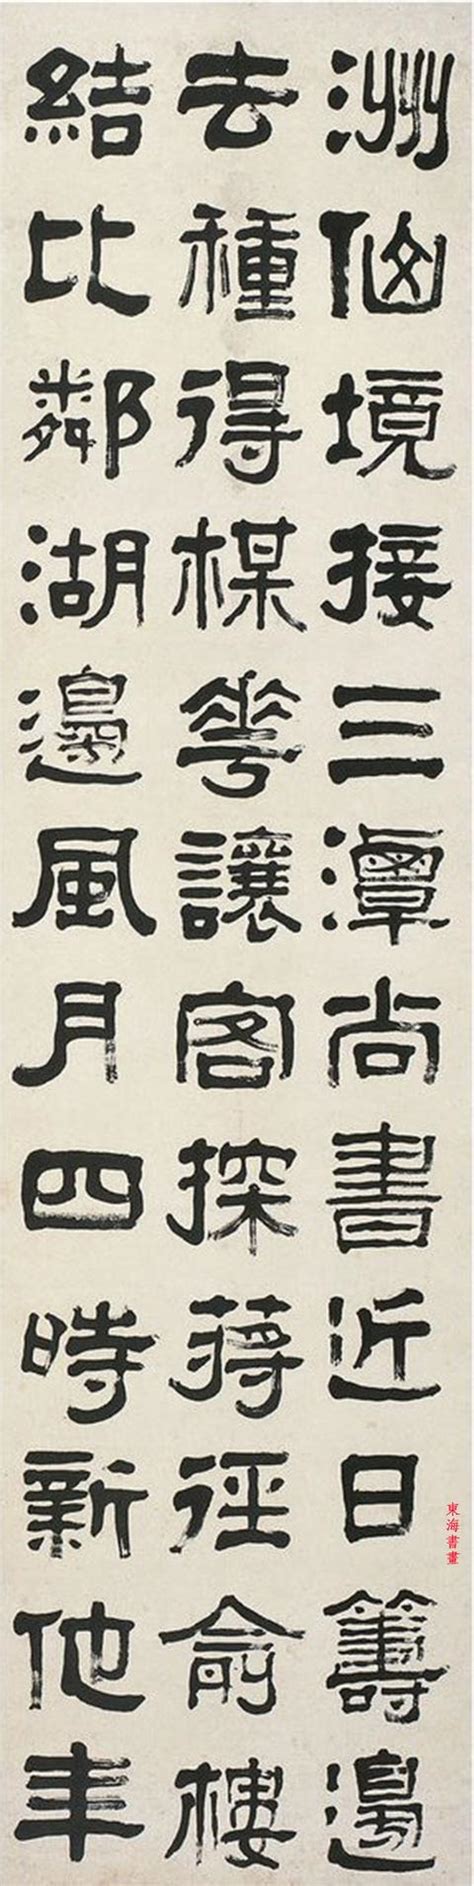 洲仙境接三潭尚書近日籌邊
去種得楳花讓客探蔣徑俞樓
結比鄰湖邊風月四時新他年
東海書畫